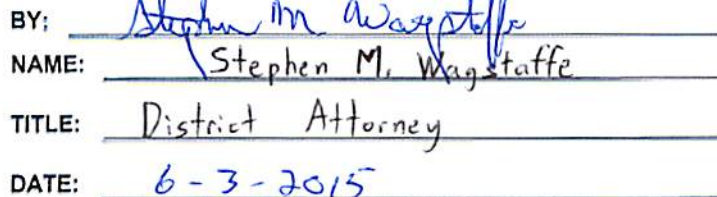 BY: Stephen M. Wagstaffe
NAME: Stephen M. Wagstaffe
TITLE: District Attorney
DATE: 6-3-2015